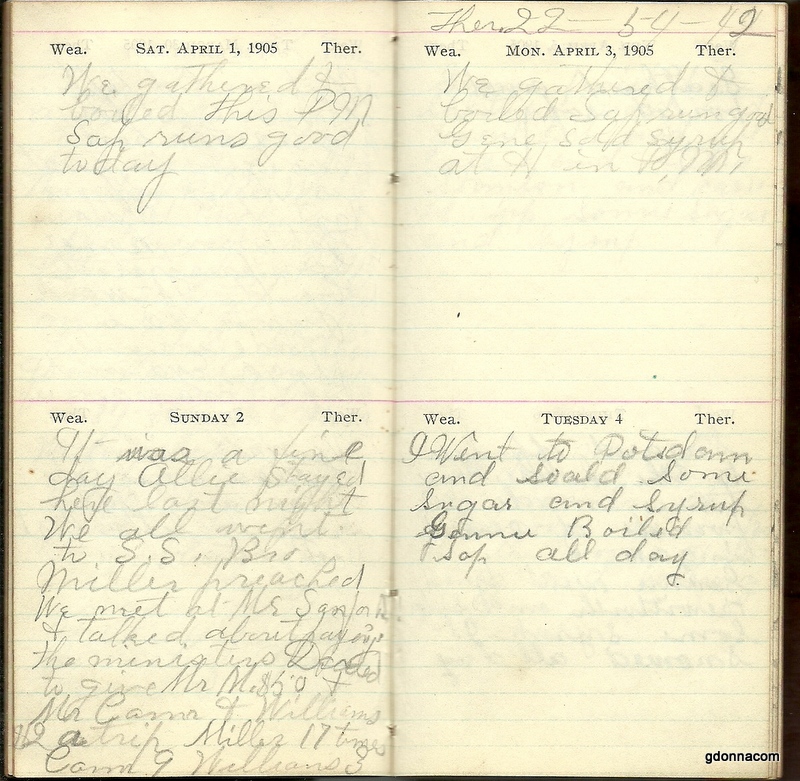 Wea. SAT. APRIL 1, 1905 Ther.
We gathered &
boiled this PM
Sap runs good
today
Wea. SUNDAY 2 Ther.
It was a fine
day Allie stayed
here last night
We all went
to S.S. Bro
Miller preached
We met at Mr Sanford
& talked about paying
the ministers Decided
to give Mr M. &
Mr Camr & Williams
a trip Miller 17 times
Camr 9 Williams 3
Ther. 22 - 54 - 42
Wea. MON. APRIL 3, 1905 Ther.
We gathered &
boiled Sap run good
Gene sold syrup
at H in
Wea. TUESDAY 4 Ther.
I Went to Potsdam
and soald some
sugar and syrup
Boiled
sap all day
gdonnacom